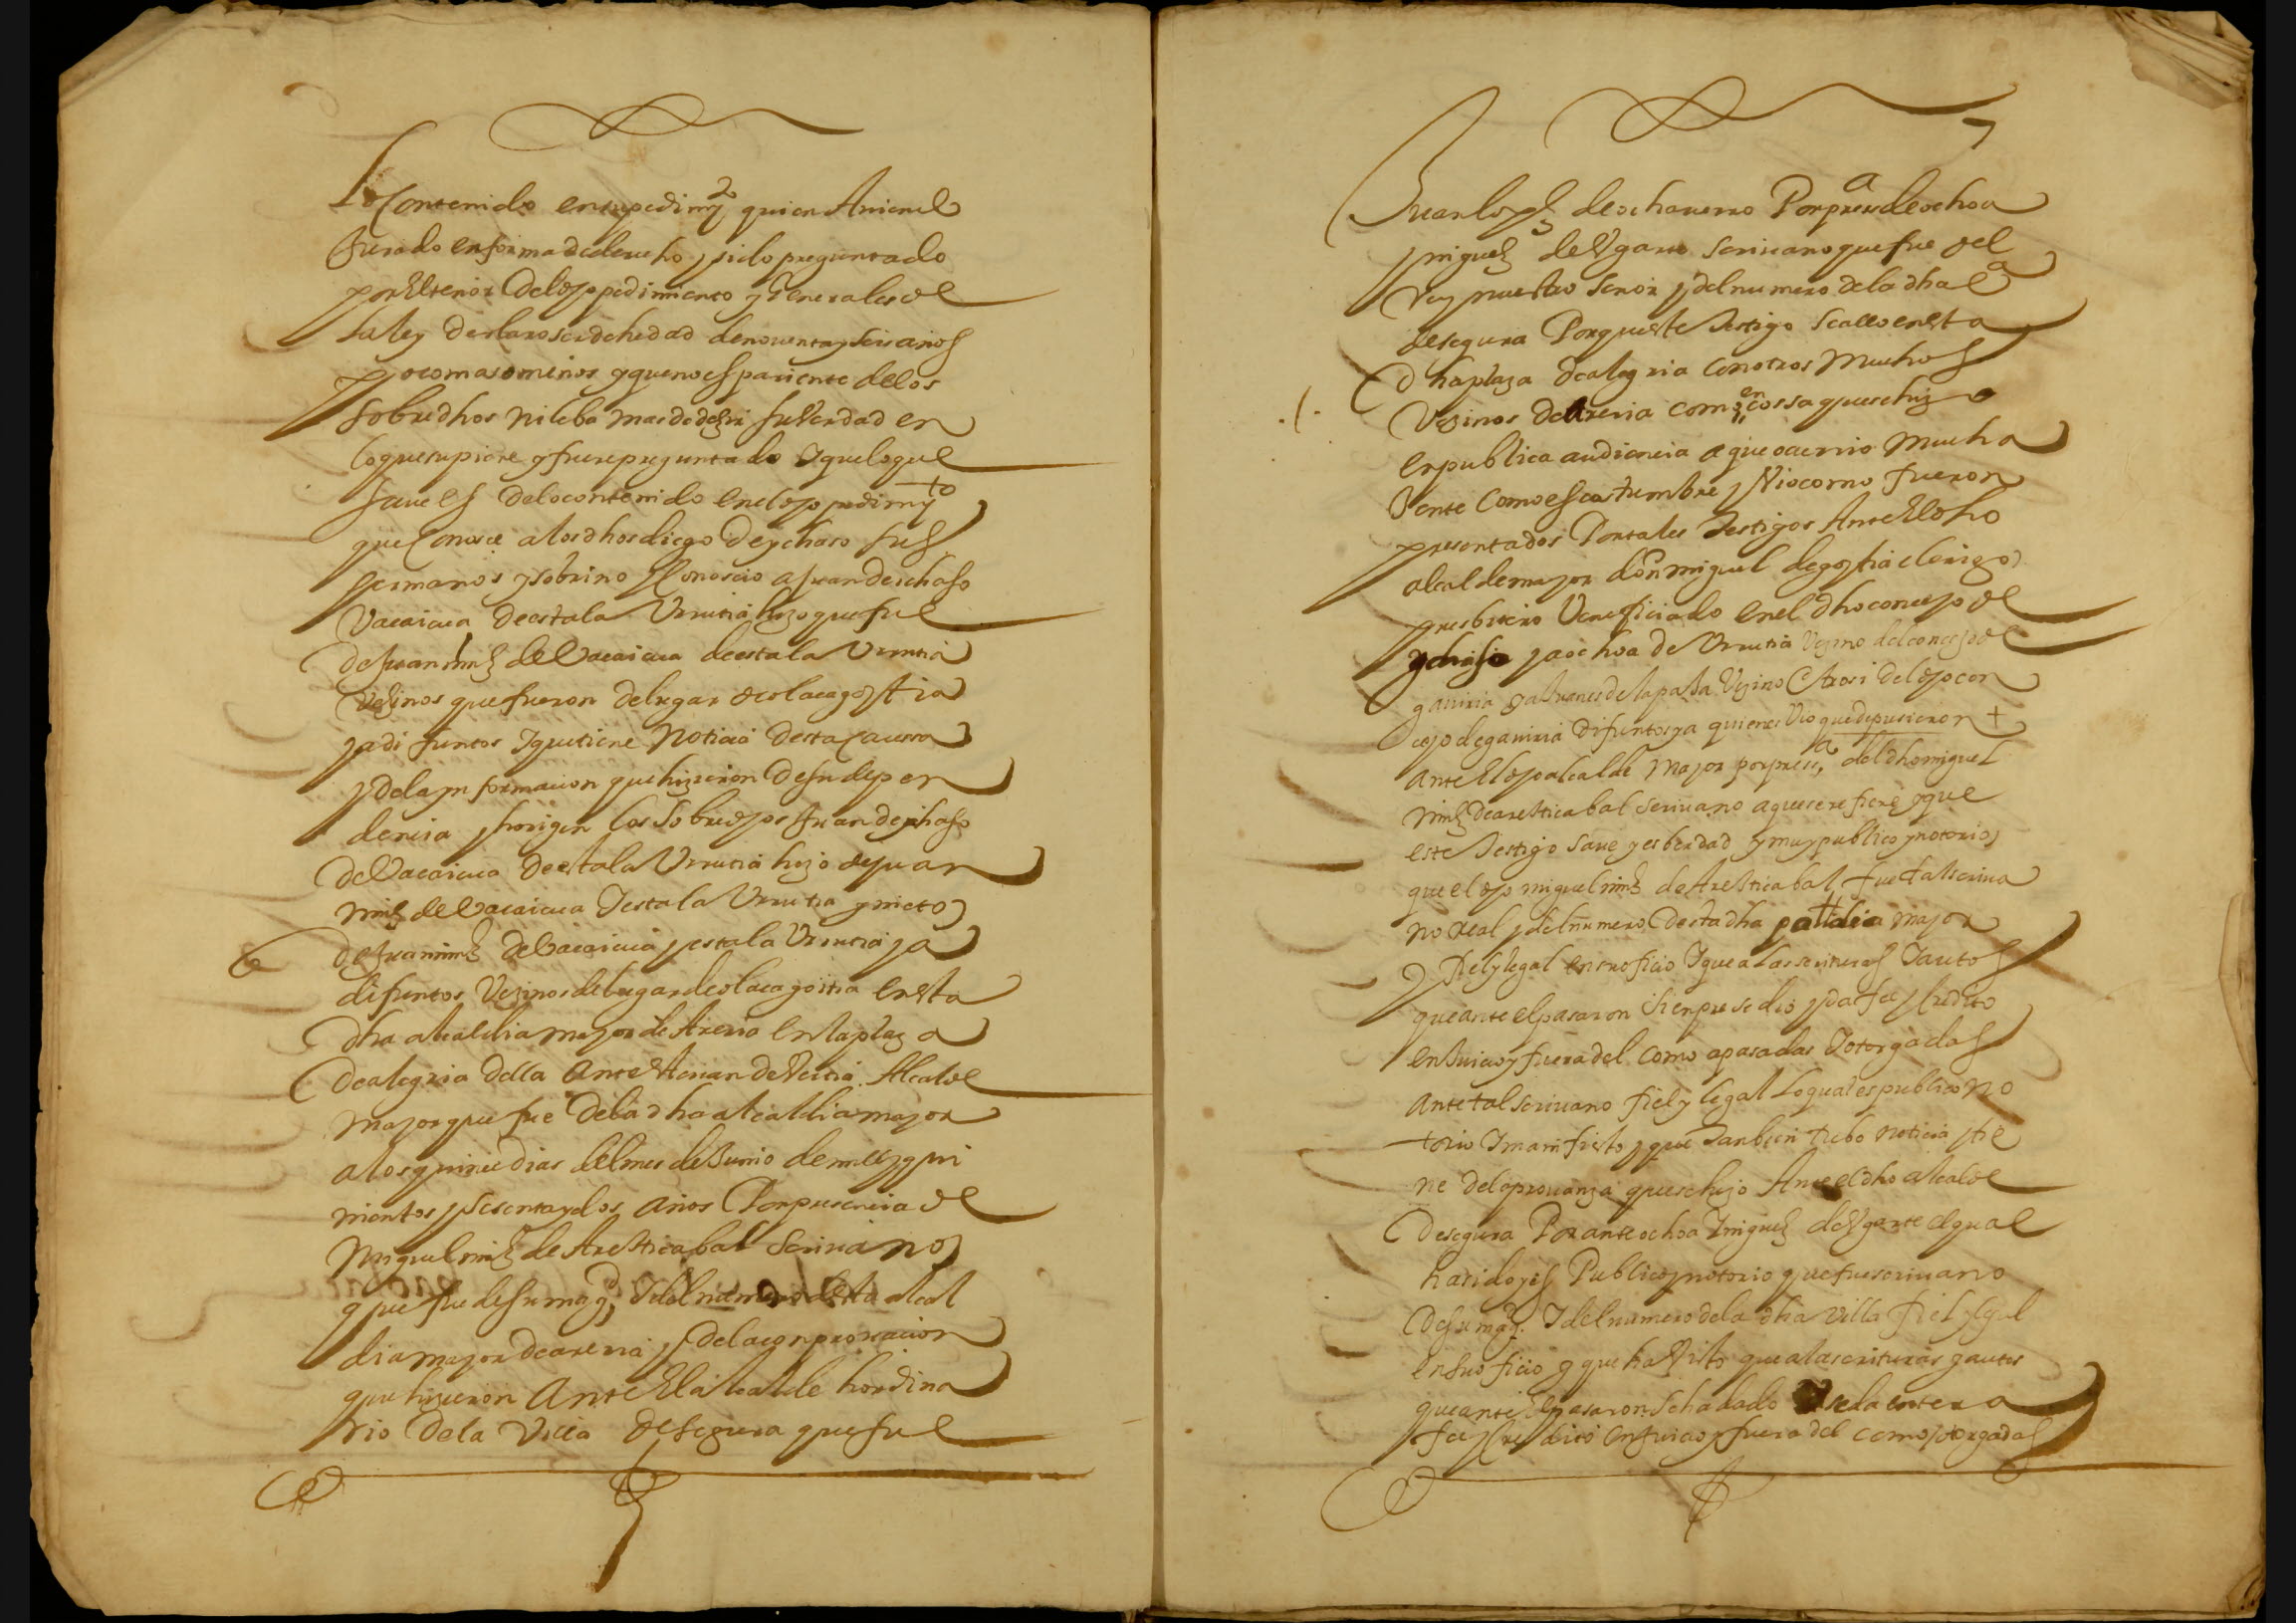 lo Contenido en su pedimyto quien Aniendo
Jurado en forma de derecho y sido preguntado
por El tenor Del dho pedimiento y Generales de
la ley declaro ser de hedad de noventa y seis años
poco mas o menos y que no es pariente de los
sobredhos ni leba mas de dezir su Verdad en
lo que supiere y fuere preguntado Y que lo que
saue es de lo contenido en el dho pedimyto
que Conosce a los dhos diego De ychaso sus
hermanos y sobrino y Conoscio a Juan de ichaso
Vacaicua de estala Vrrutia hijo que fue
de Juan mnz de Vacaicua de estala Vrrutia
Vezinos que fueron del lugar de olacagostia
ya difuntos Y que tiene Noticia desta Caussa
y de la ynformacion que hizieron De su depen
dencia y horigen los sobredhos Juan de ichaso
de Vacaicua De estala Vrrutia hijo de Juan
mnz de Vacaicua Y estala Vrrutia y nieto
de Juan mnz de Vacaicua y estala Vrrutia ya
difuntos Vezinos del lugar de olacagoitia en esta
dha alcaldia mayor de Areria en la plaza
de alegria della Ante Alcalde
mayor que fue de la dha alcaldia mayor
a los quince dias del mes de Junio de mill y qui
nientos y sesenta y dos años Por presencia de
Miguel mnz de Aresticabal Scriuano
que fue de su magd, Y del numero desta alcal
dia mayor de areria y de la conprouacion
que hizieron Ante El alcalde hordina
rio De la Villa de segura que fue
Juan lopez de Por presa de ochoa
yñiguez de Vgarte scriuano que fue del
rey nuestro señor y del numero de la dha Va
de segura Porque este Testigo se allo en esta
dha plaza de alegria con otros muchos
Vezinos de Areria como en cossa que se hizo
en publica audiencia a que ocurrio mucha
Jente como es costumbre y Vio como fueron
presentados Por tales Testigos Ante El dho
alcalde mayor don miguel de gostia clerigo
presbitero Veneficiado en el dho concejo de
ychaso y a ochoa de Vrrutia Vezino del concejo de
gauiria y a Juanes de lapaça Vezino del dho con
cejo de gauiria difuntos y a quienes Vio que depusieron +
ante El dho alcalde mayor por presa, del dho miguel
mnz de aresticabal scriuano a que se refiere y que
este Testigo saue y es berdad y muy publico y notorio
que el dho miguel mnz de Aresticabal fue tal scriua
no real y del numero Desta dha alcaldia mayor
Fiel y legal en su oficio Y que a las scrituras Y autos
que ante el pasaron sienpre se dio y da fee y Credito
en Juicio y fuera del como a pasadas Y otorgadas
ante tal scriuano fiel y legal lo qual es publico no
torio Y manifiesto y que Tanbien tubo noticia y tie
ne de la prouanza que se hizo Ante el dho alcalde
De segura Por ante ochoa Yñiguez de Vgarte el qual
ha sido y es Publico y notorio que fue scriuano
De su magd. Y del numero de la dha villa fiel y legal
en su oficio y que ha Visto que a las scrituras y autos
que ante El pasaron se ha dado Y se da entera
fee y Credito en Juicio y fuera del como otorgadas